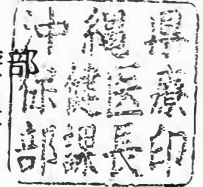 沖縄県
部
保健医療
部課長印